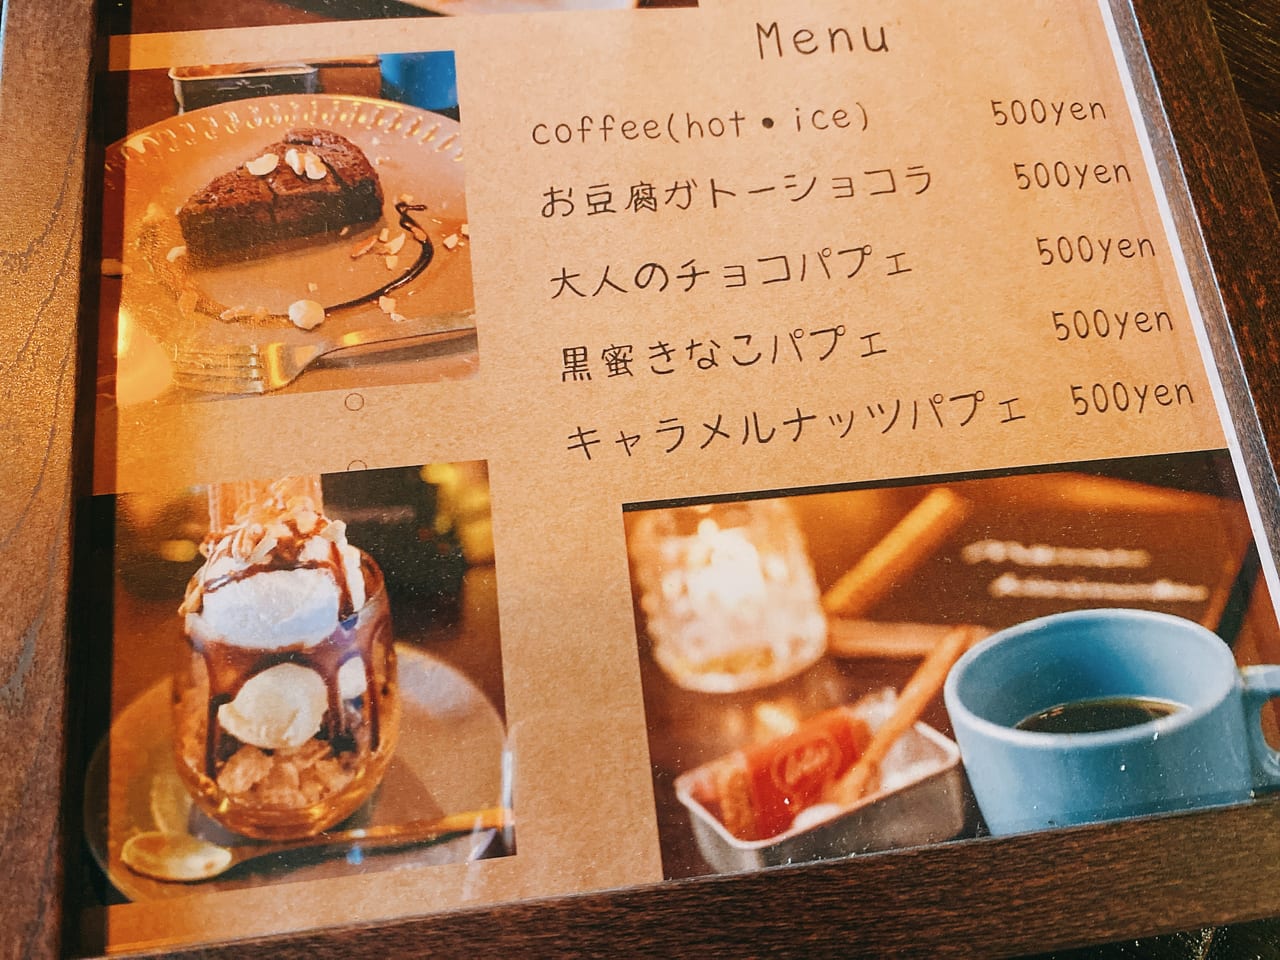 Menu
coffee(hot・ice) 500yen
お豆腐ガトーショコラ 500yen
大人のチョコパプェ 500yen
黒蜜きなこパプェ 500yen
キャラメルナッツパプェ 500yen